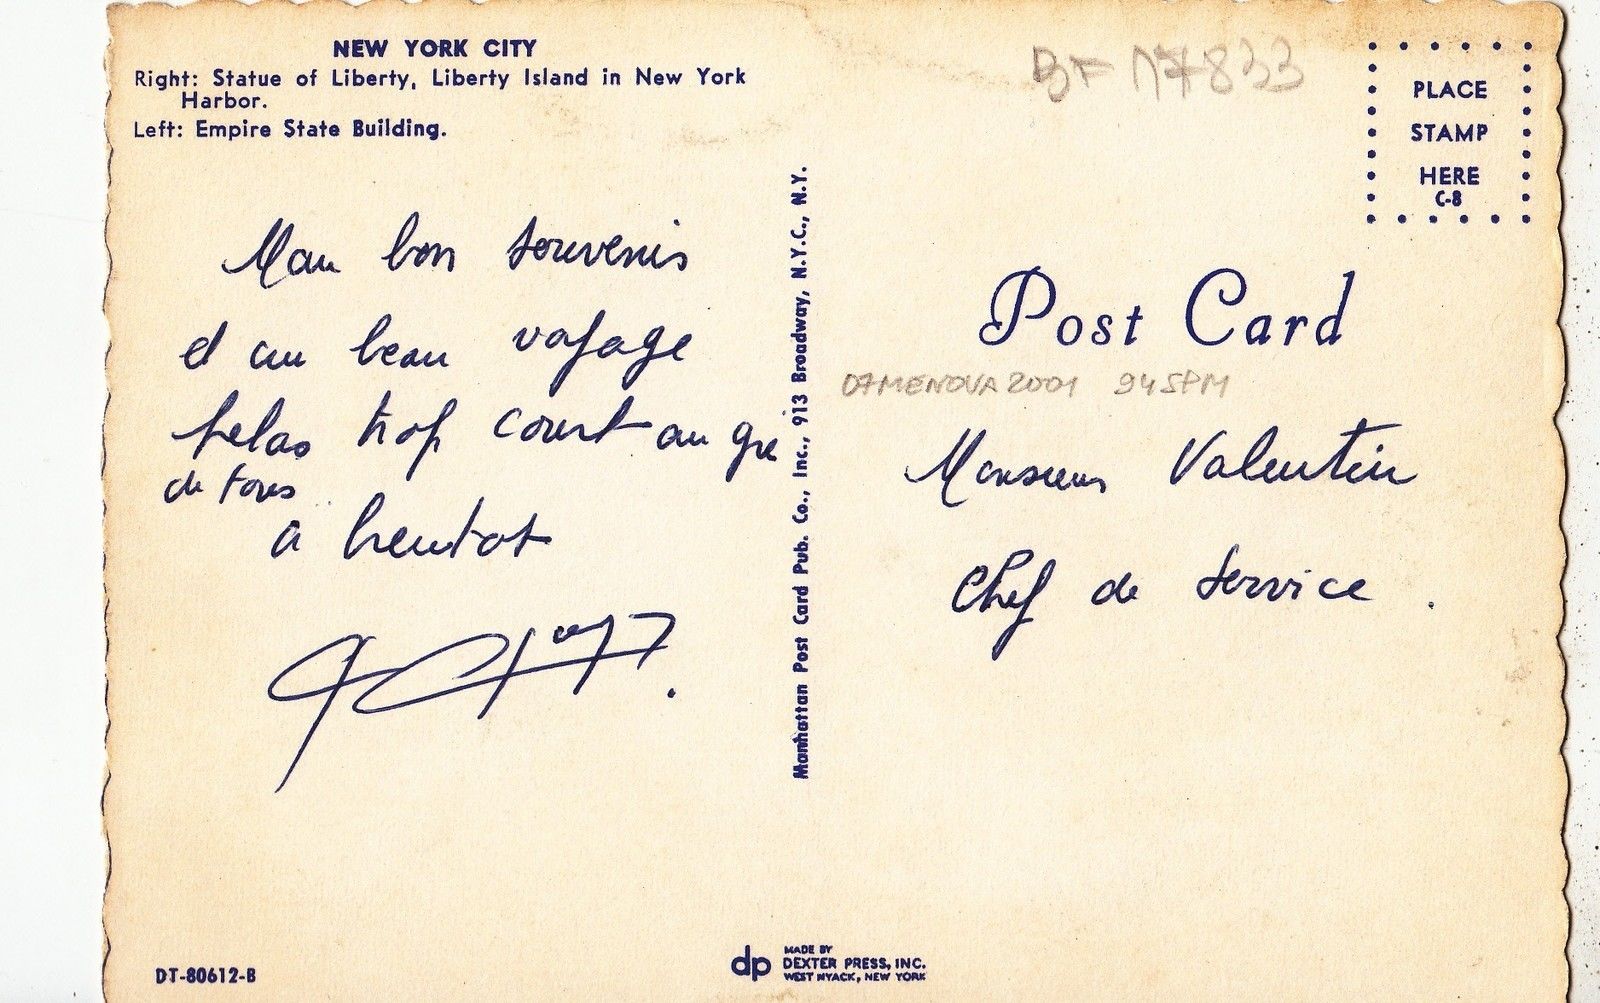 NEW YORK CITY
Right: Statue of Liberty, Liberty Island in New York
Harbor.
Left: Empire State Building.
bon souvenir
et un beau voyage
helas trop court au gré
de tous
a bientot
Manhattan Post Card Pub. Co., Inc., 913 Broadway, N.Y.C., N.Y.
PLACE
STAMP
HERE
C-8
Post Card
Monsieur Valentin
Chef de Service.
DT-80612-B
dp
MADE BY
DEXTER PRESS, INC.
WEST NYACK, NEW YORK